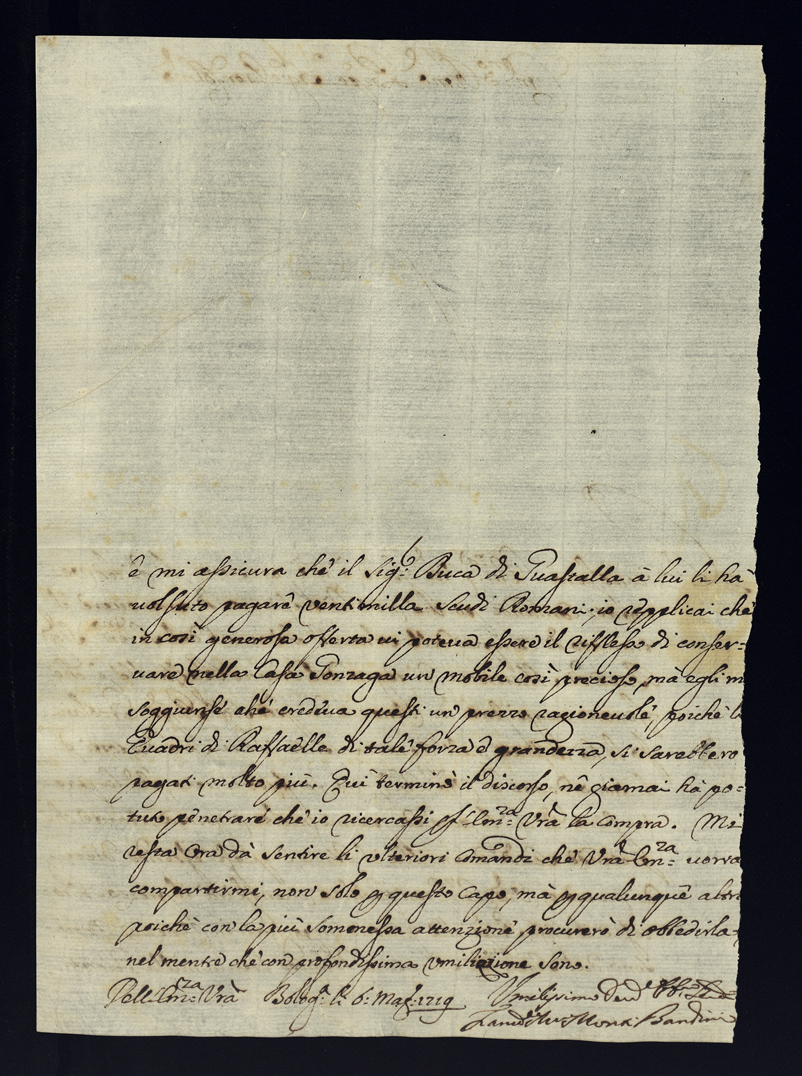 è mi assicura che il Sigr. Duca di Guastalla à lui li hà
volsuto pagare ventimilla Scudi Romani; io replicai che
in così generosa offerta vi poteva essere il riflesso di conser=
vare nella Casa Gonzaga un mobile così precioso, mà egli m
soggiunse che credeva questi un prezzo ragionevole, poiche li
Quadri di Raffaelle di tale forza è grandezza, si sarebbero
pagati molto più. Qui terminò il discorso, nè giamai hà po=
tuto penetrare che io ricercassi Em:za Vrà la Compra. Mi
resta Ora dà sentire li ulteriori Comandi che Vrà Em:za vorrà
compartirmi, non solo p questo Capo, mà p qualunque altro
poiche con la più somessa attenzione procurerò di obbedirla
nel mentre che con profondissima umiliazione sono.
Dell' Em:za Vrà Bologa. li 6: Mag: 1719 Umilissimo Devo
Monti Bandini